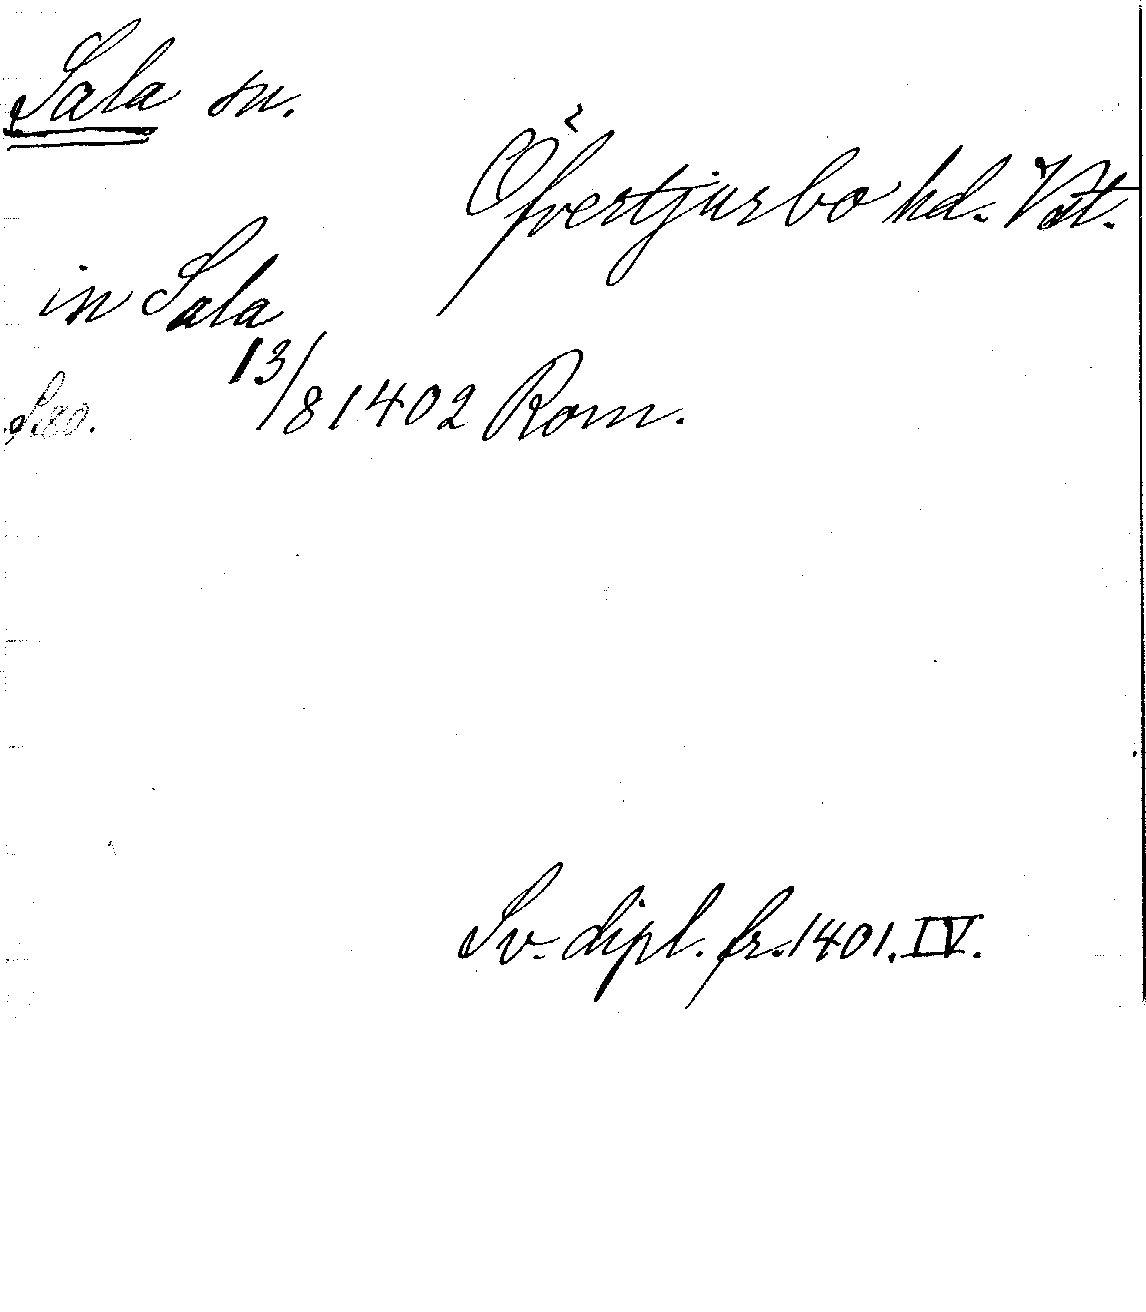 Sala sn.
Öfvertjurbo hd. Vstm.
in Sala
13/8 1402 Rom.
S. 80.
Sv. dipl. fr. 1401. IV.